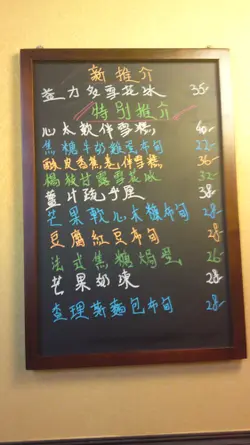 新推介
益力多雪花冰 35-
特別推介
心太軟伴雪糕 40-
焦糖牛奶雞蛋布甸 22-
脆皮香蕉卷伴雪糕 36-
楊枝甘露雪花冰 32-
薑汁疏乎厘 38-
芒果軟心太糯布甸 28-
豆腐紅豆布甸 28-
法式焦糖焗蛋 26-
芒果奶凍 28-
查理斯麵包布甸 28-